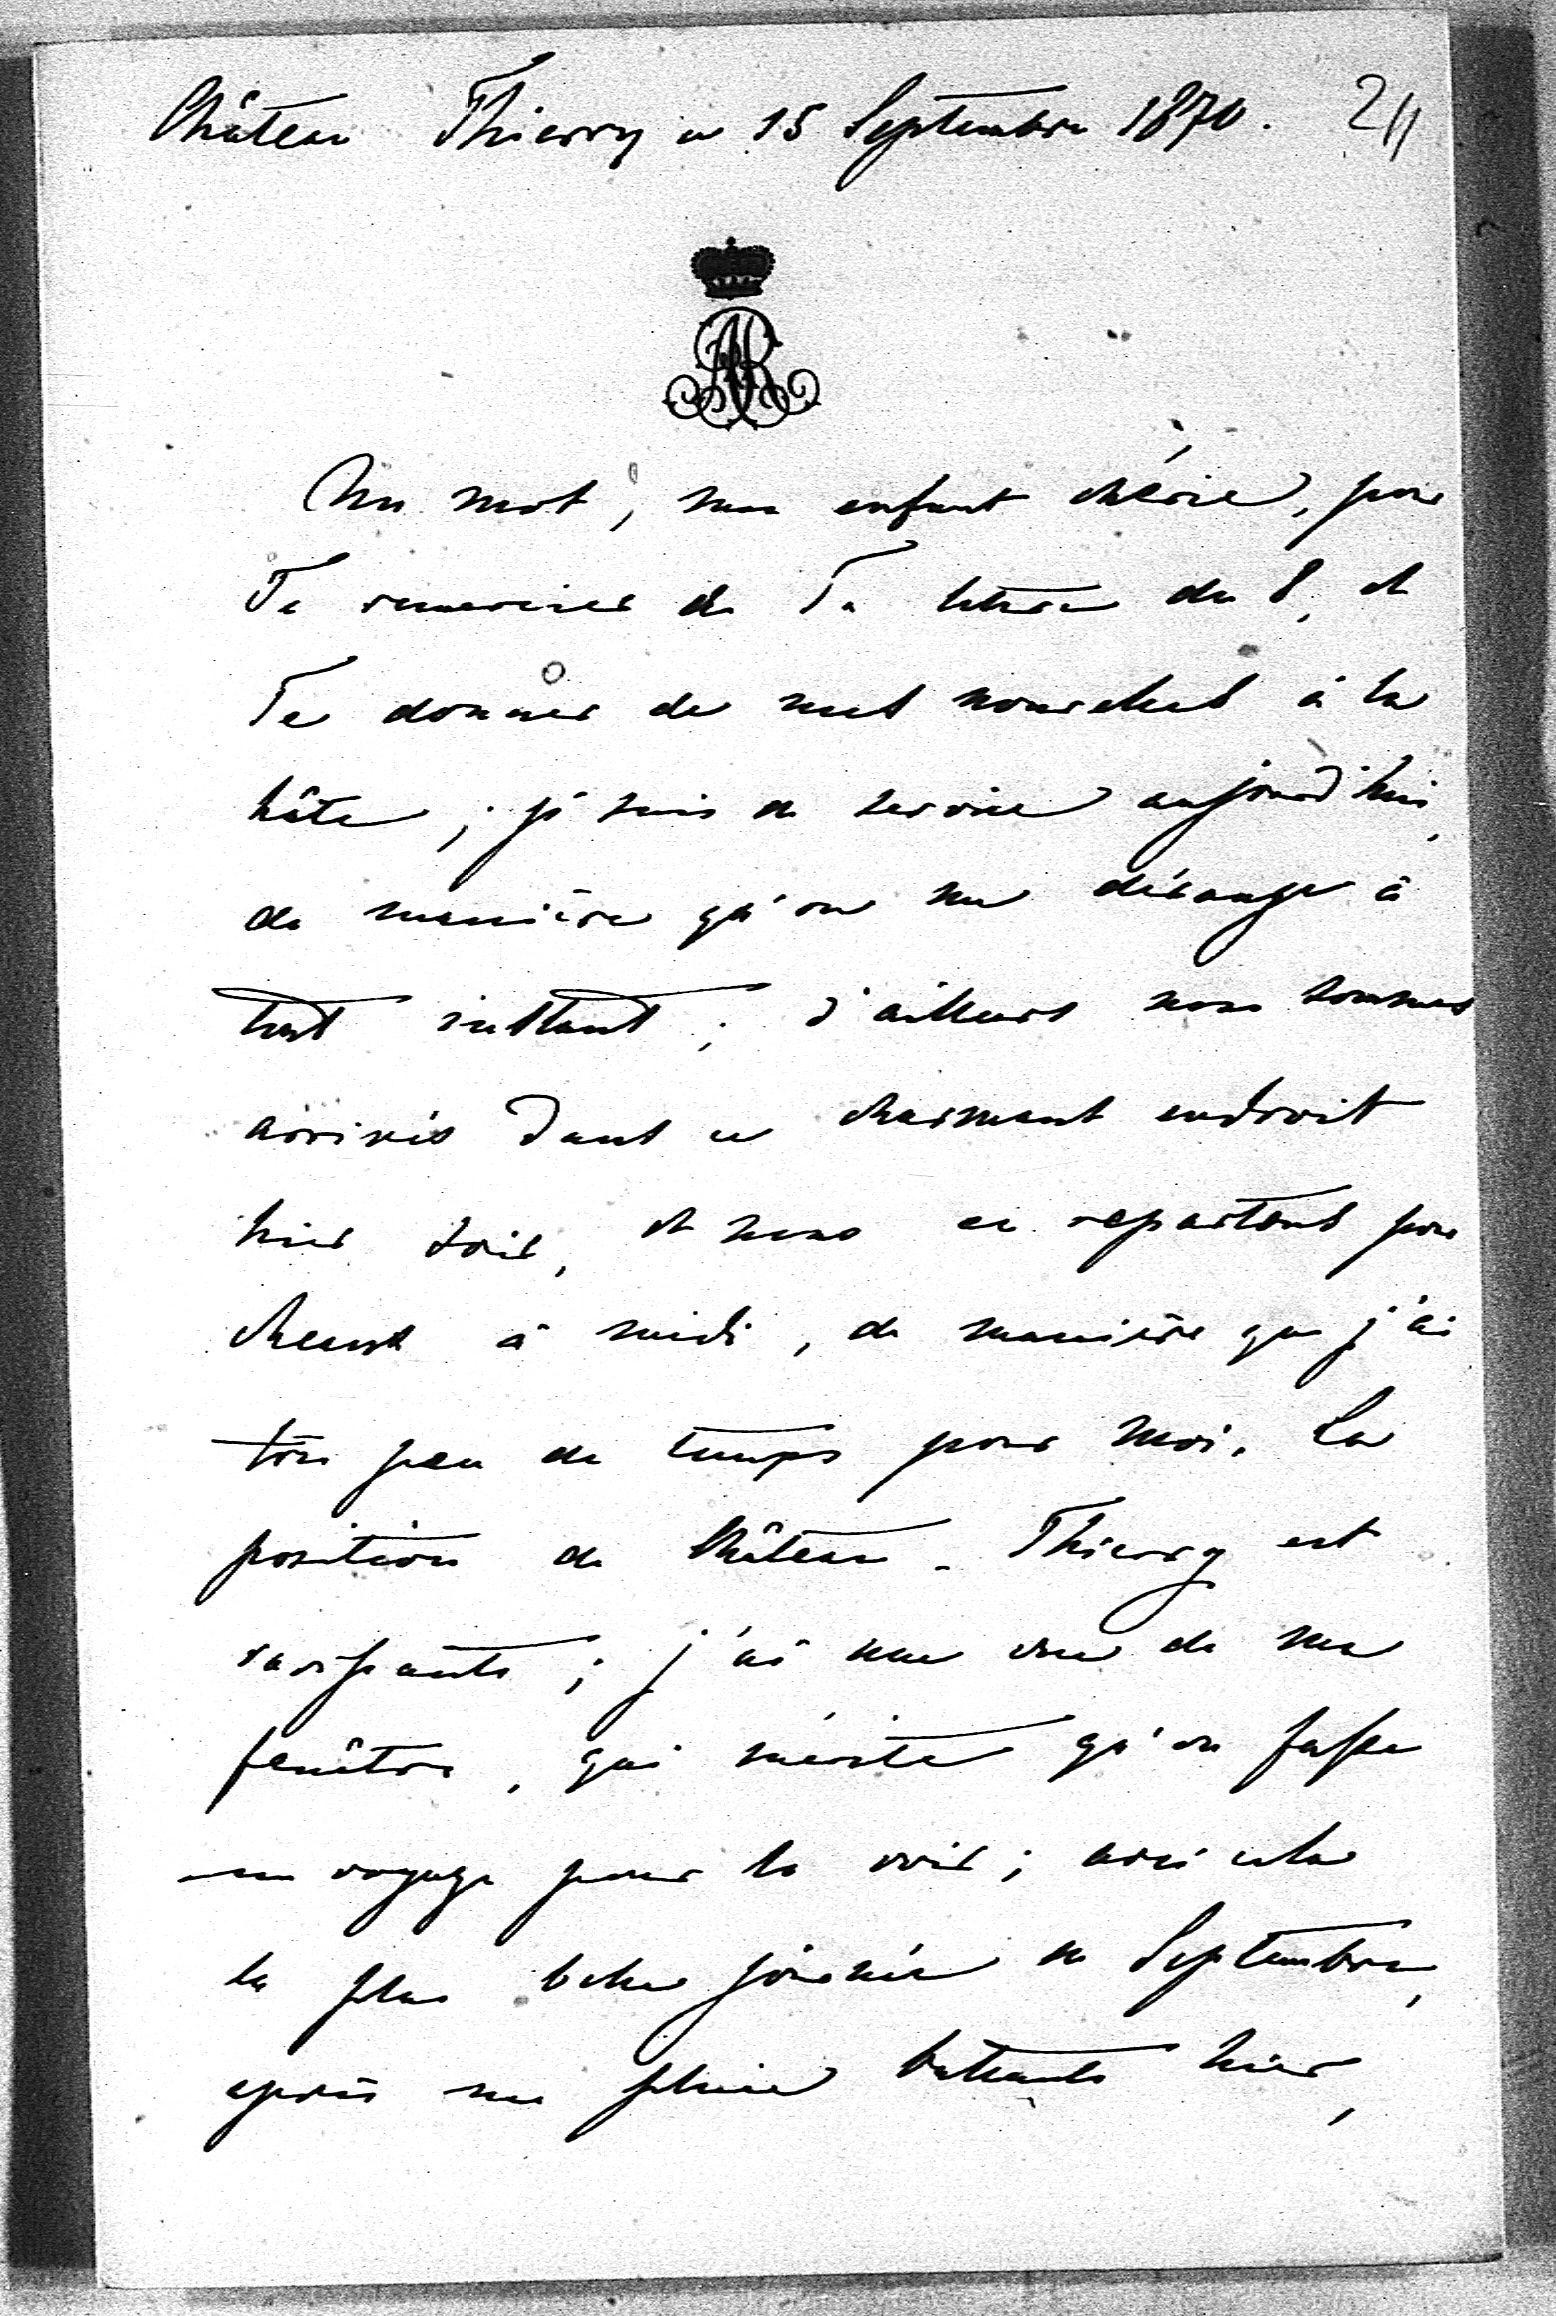 Château Thierry ce 15 Septembre 1870. 211
AR
Un mot, mon enfant chérie, pour
Te remercier de Ta lettre du 8, et
Te donner de mes nouvelles à la
hâte ; je suis de service aujourd'hui,
de manière qu'on me dérange à
tout instant ; d'ailleurs nous sommes
arrivés dans ce charmant endroit
hier soir, et nous en repartons pour
Meaux à midi, de manière que j'ai
très peu de temps pour moi. La
position de Château-Thierry est
ravissante ; j'ai une vue de ma
fenêtre, qui mérite qu'on fasse
un voyage pour la voir ; avec cela
la plus belle journée de Septembre,
après une pluie battante hier,